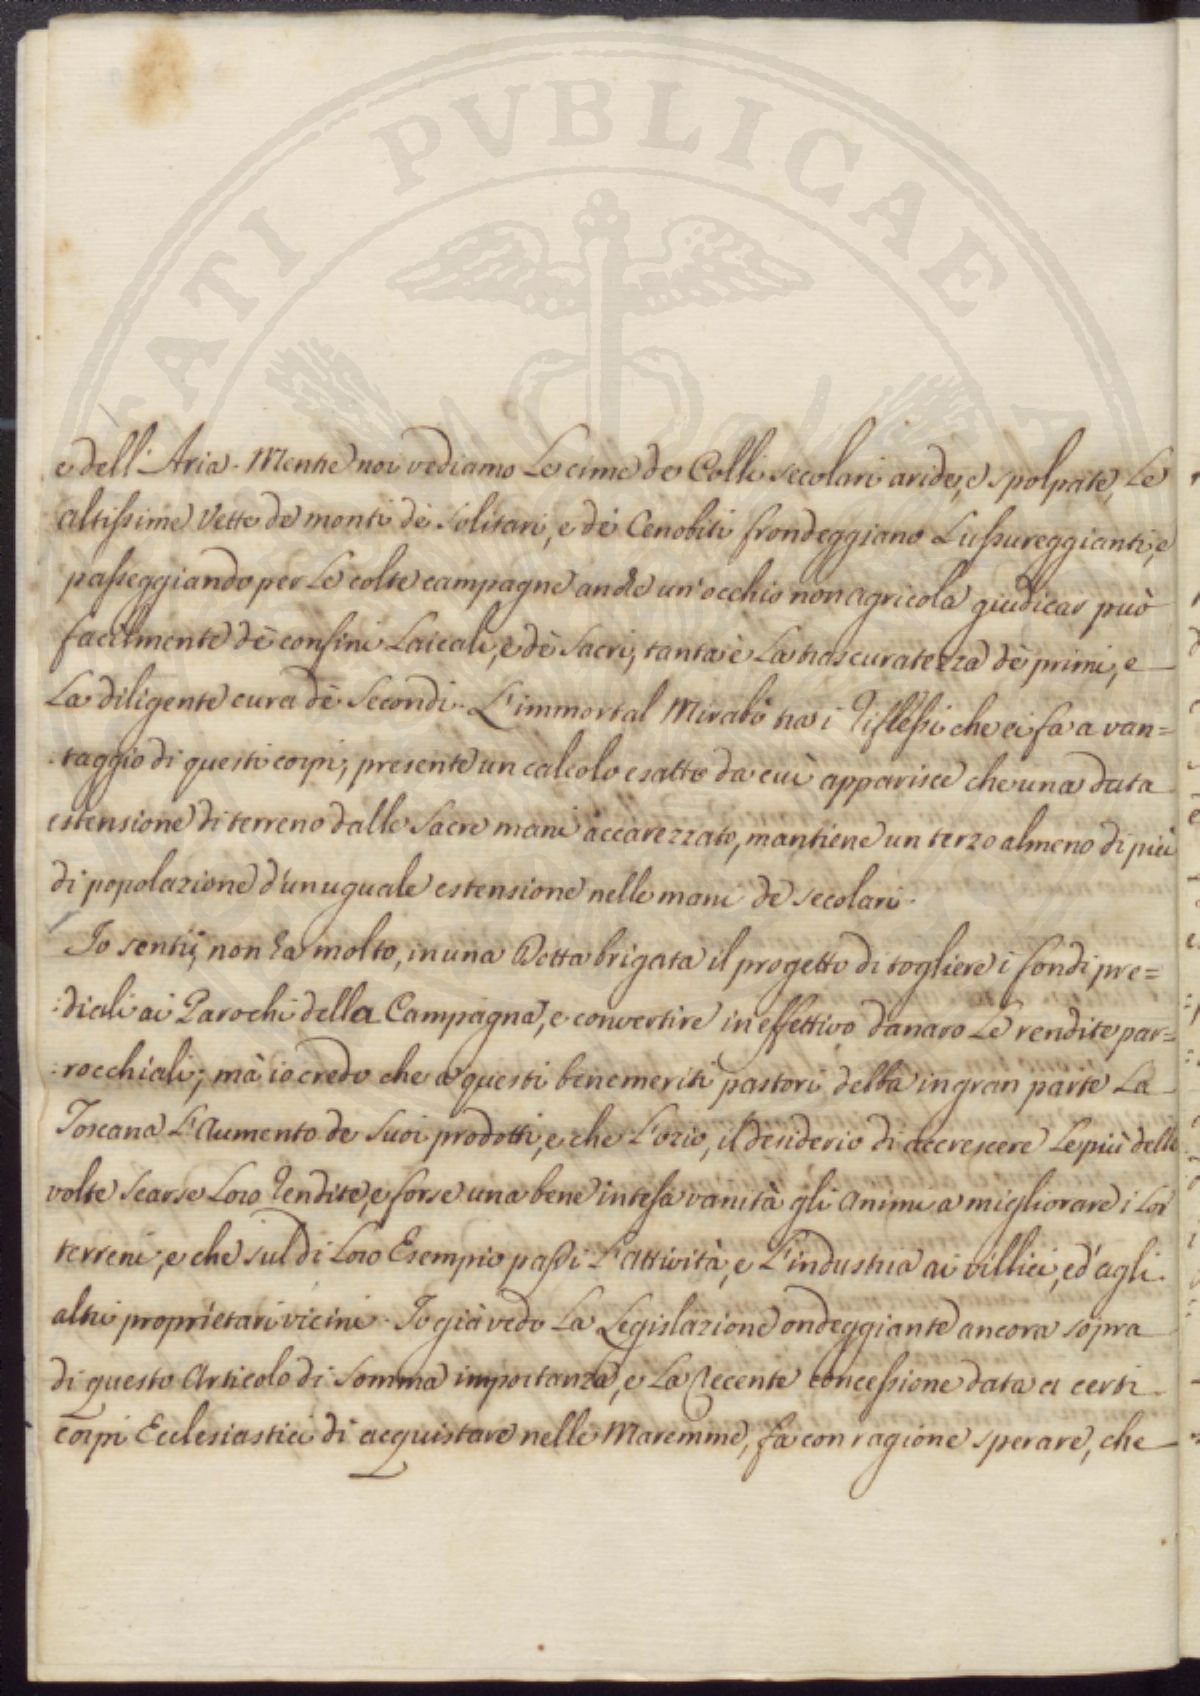 PVBLICAE
ATI
e dell'Aria. Mentre noi vediamo Le cime de Colli secolari aride, e spolpate, Le
altissime Vette de monti dè solitari, e dè Cenobiti frondeggiano Lussureggianti, e
passeggiando per Le colte campagne anche un'occhio non agricola giudicar può
facilmente dè confini Laicali, e dè Sacri, tanta è La trascuratezza dè primi, e
La diligente cura dè Secondi. L'immortal Mirabò tra i Riflessi che ci fa a van=
taggio di questi corpi, presente un calcolo esatto da cui apparisce che una data
estensione di terreno dalle Sacre mani accarezzato, mantiene un terzo almeno di più
di popolazione d'un uguale estensione nelle mani de secolari.
Io sentii, non ha molto, in una Dotta brigata il progetto di togliere i fondi pre=
:diali ai Parochi della Campagna, e convertire in effettivo danaro Le rendite par=
:rocchiali; mà io credo che a questi benemeriti pastori debba in gran parte La
Toscana L'Aumento de suoi prodotti, e che L'ozio, il desiderio di accrescere Le più delle
volte scarse Loro Rendite, e forse una bene intesa vanità gli animi a migliorare i Lor
terreni, e che sul di Loro Esempio passi L'attività, e L'industria ai villici, ed agli
altri proprietari vicini. Io già vedo La Legislazione ondeggiante ancora sopra
di questo Articolo di somma importanza, e La Recente concessione data a certi
corpi Ecclesiastici di acquistare nelle Maremme, fa con ragione sperare, che